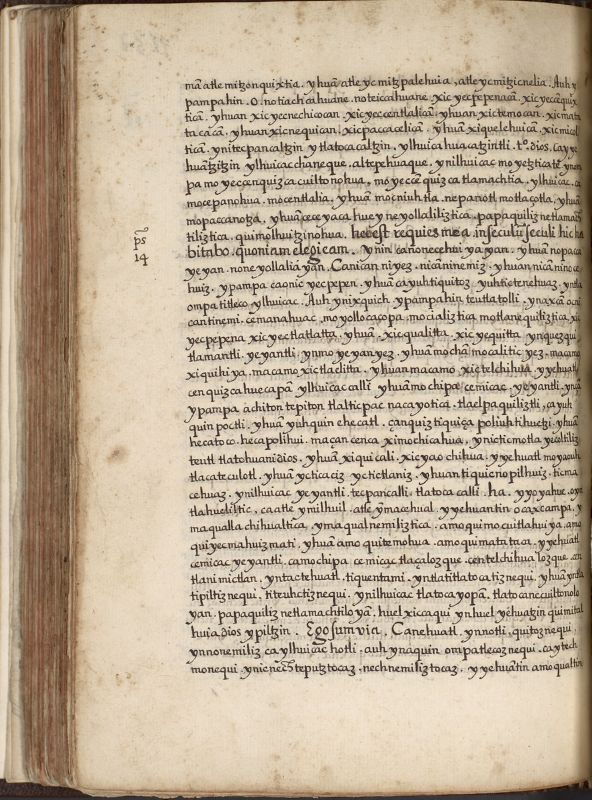 mā atle mitzonquixtia. yhuā atle yc mitzpalehuia, atle yc mitzicnelia. Auh y
pampahin. O. notlachcahuane. noteiccahuane. xic yecpepenacā. xic yeccāquix
ticā. yhuan xic yecnechicocan. xic yeccentlalicā. yhuan xictemocan. xicmata
tacacā. yhuan xicnequican. xicpaccacelicā. yhuā xiquelehuicā, xicmicol
ticā. ynitecpancaltzin ytlatocacaltzin. ylhuicahuacatzintli. tº. dios. ca y ye
huātzitzin ylhuicac chaneque, altepehuaque, ynilhuicac moyetzticatē ynom
pa moyeccenquizcacuiltonohua, moyeccēquizcatlamachtia. ylhuicac. ca
mocepanohua. mocentlalia. yhuā mocniuhtla. nepanotl motlaçotla, yhuā
mopaccanotza. yhuā ceceyaca hueyneyollaliliztica. papaquiliznetlamach
tiliztica. quimolhuitzinohua. hec est requies mea in seculū seculi hic ha
bitabo. quoniam elegi eam. ynin ca nonecehuiyayan. yhuā nopaca
yeyan. noneyollaliayan. Canican niyez. nicā ninemiz. yhuan nicā ninoce
huiz. ypampa ca onicyecpepen. yhuā ca yuhtiquitoz yuhtictenehuaz, yntla
ompa titleco ylhuicac. Auh ynixquich ypampahin teutlatolli. ynaxcā ocni
cantinemi. cēmanahuac, moyollocacopa, mocializtica motlanequiliztica, xic
yecpepena xic yectlatlatta. yhuā. xicqualitta. xic yequitta ynquezqui
tlamantli. yeyantli. ynmoyeyanyez. yhuā mochā mocalitic yez. macamo
xiquihiya. macamo xictlacitta. yhuan macamo xictelchihua, yyehuatl
cenquizcahuecapā ylhuicaccalli yhuā mochipa cemicac. yeyantli. ynic
ypampa achiton tepiton tlalticpac nacayotica. tlaelpaquiliztli, ca yuh
quin poctli. yhuā yuhquin ehecatl. çanquiztiquiça poliuhtihuetzi. yhuā
hecatoco. hecapolihui. maçan cenca ximochicahua, ynicticmotlayecoltiliz
teutl tlatohuani dios. yhuā xiquicali. xicyaochihua. yyehuatl moyaouh
tlacateculotl. yhuā yctiacaz yctictlaniz. yhuan tiquenopilhuiz. ticma
cehuaz. ynilhuicac yeyantli. tecpancalli. tlatocacalli. ha. yyoyahue. oye
tlahueliltic, ca atle ymilhuil. atle ymacehual. yyehuantin oc axcampa, y
maqualla chihualtica, ymaqualnemiliztica. amo quimocuitlahuiya. amo
quiyecmahuizmati. yhuā amo quitemohua. amo quimatataca. yyehuatl
cemicac yeyantli. ca mochipa cemicac tlaçalozque. centelchihualozque. cen
tlani mictlan. yntactehuatl. tiquentami. yntla titlatocatiznequi. yhuā yntla
tipiltiznequi, titeuhctiznequi. ynilhuicac tlatocayopā, tlatocanecuiltonolo
yan. papaquiliznetlamachtiloyan. huel xiccaqui ynhuel yehuatzin quimital
huia dios ypiltzin. Ego sum via. Ca nehuatl, ynnotli, quitoznequi
ynnonemiliz ca ylhuicac hotli. auh ynaquin ompa tlecoznequi. ca ytech
monequi. ynic nechteputztocaz, nechnemiliztocaz. y yehuātin amo qualtin
ps
14